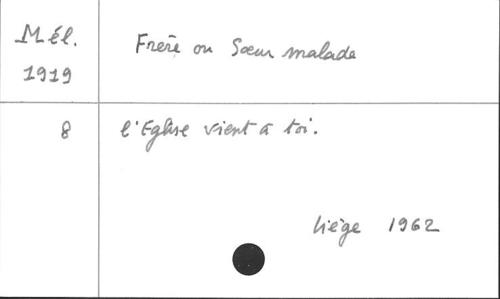 Mél.
1919
Frère ou Sœur malade
8
l'Eglise vient à toi.
Liège 1962